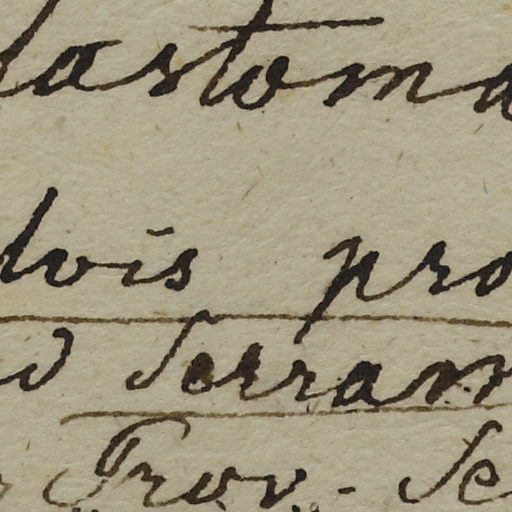 lastoma
lvis pro
d Serram
Prov. Se